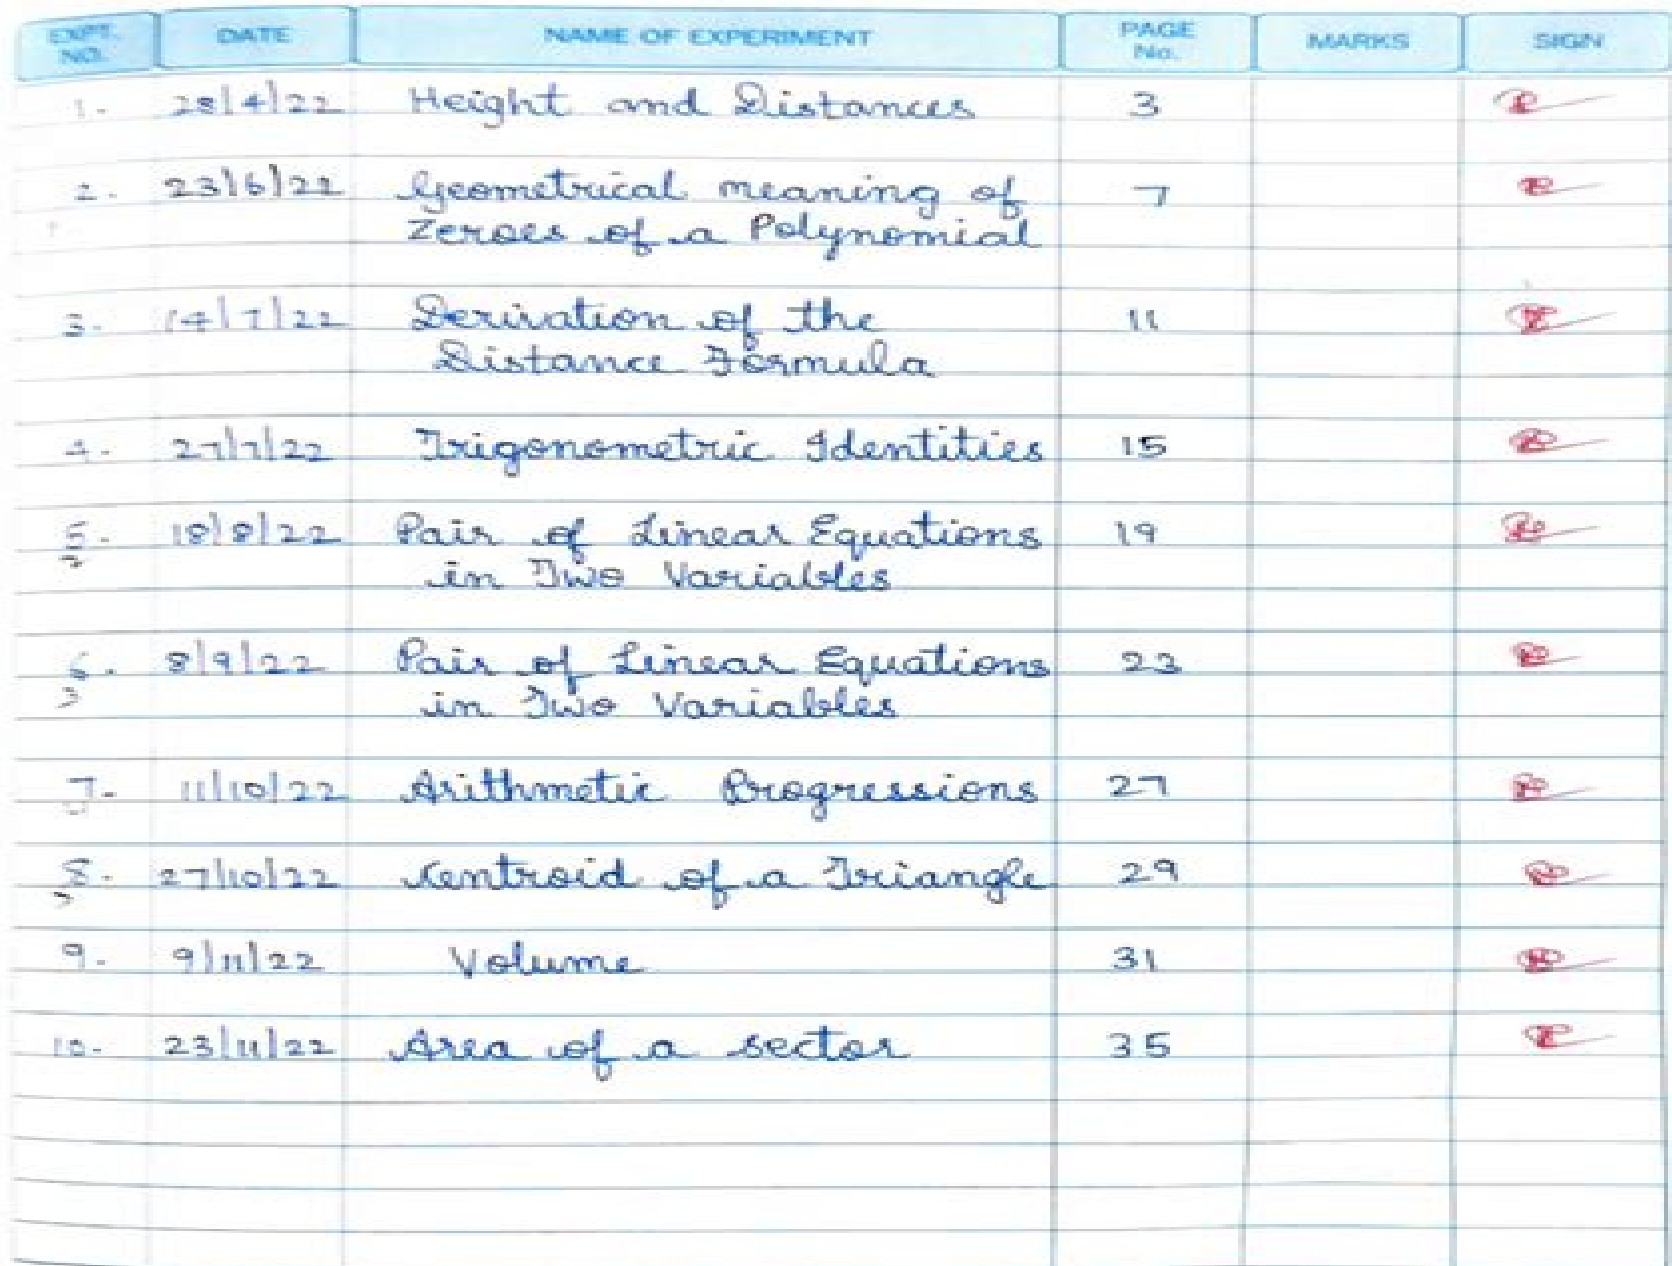 EXPT. NO. DATE NAME OF EXPERIMENT PAGE No. MARKS SIGN
1. 28/4/22 Height and Distances 3
2. 23/6/22 Geometrical meaning of 7
Zeroes of a Polynomial
3. 14/7/22 Derivation of the 11
Distance Formula
4. 27/7/22 Trigonometric Identities 15
5. 18/8/22 Pair of Linear Equations 19
in Two Variables
6. 8/9/22 Pair of Linear Equations 23
in Two Variables
7. 11/10/22 Arithmetic Progressions 27
8. 27/10/22 Centroid of a Triangle 29
9. 9/11/22 Volume 31
10. 23/11/22 Area of a sector 35